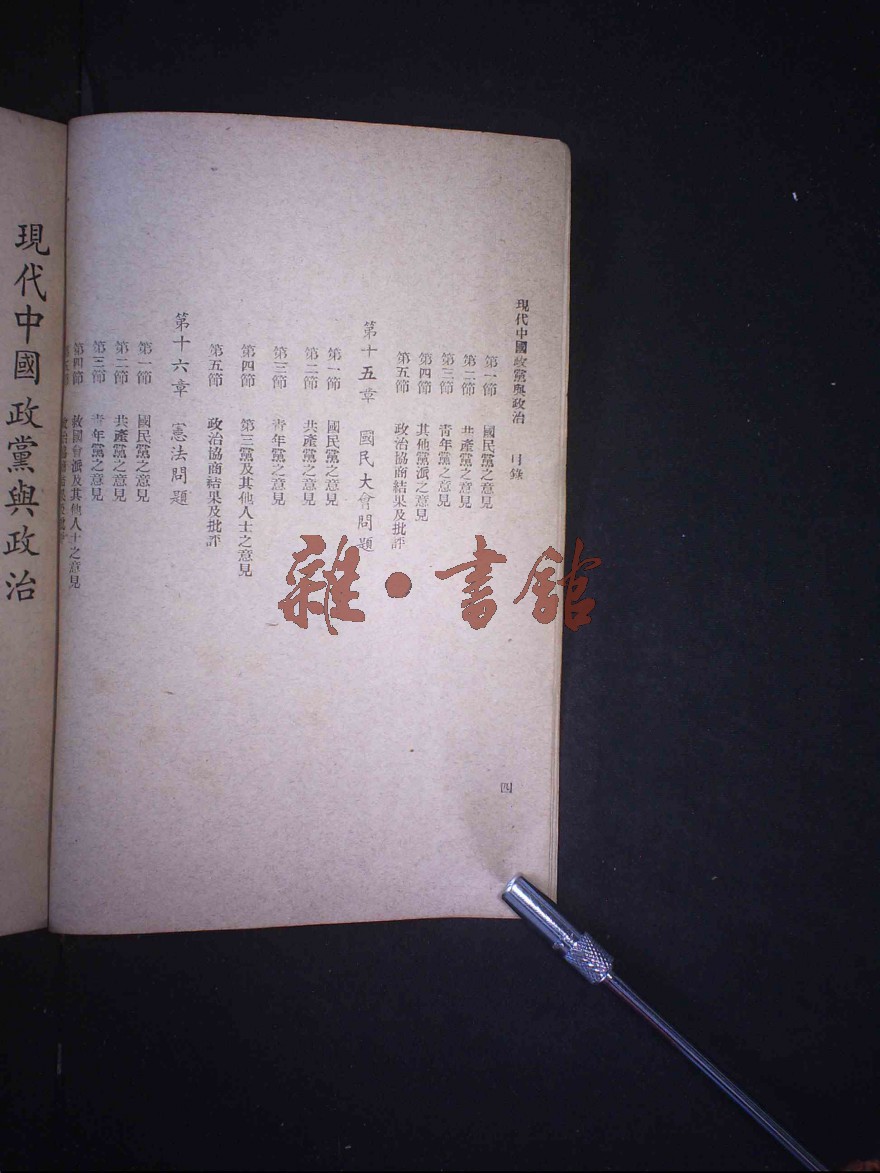 現代中國政黨與政治　目錄
第一節　國民黨之意見
第二節　共產黨之意見
第三節　青年黨之意見
第四節　其他黨派之意見
第五節　政治協商結果及批評
第十五章　國民大會問題
第一節　國民黨之意見
第二節　共產黨之意見
第三節　青年黨之意見
第四節　第三黨及其他人士之意見
第五節　政治協商結果及批評
第十六章　憲法問題
第一節　國民黨之意見
第二節　共產黨之意見
第三節　青年黨之意見
第四節　救國會派及其他人士之意見
第五節　政治協商結果及批評
四
現代中國政黨與政治
雜·書館